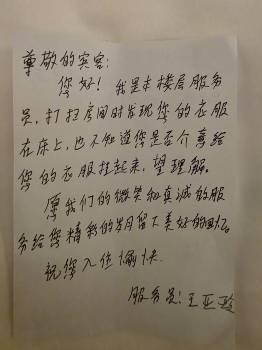 尊敬的宾客:
您好! 我是本楼层服务
员,打扫房间时发现您的衣服
在床上,也不知道您是否介意给
您的衣服挂起来,望理解。
愿我们的微笑和真诚的服
务给您精彩的岁月留下美好的回忆
祝您入住愉快.
服务员:王亚玲